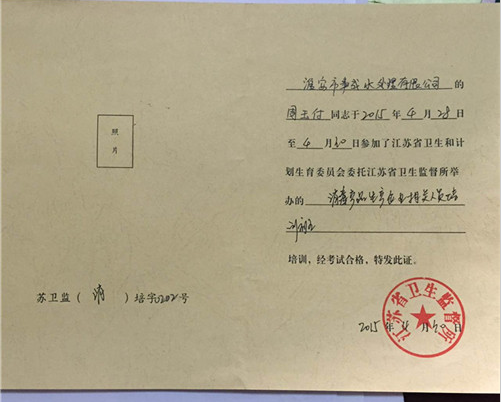 照
片
苏卫监（消）培字202号
淮安市 水处理有限公司的
周 付同志于2015年4月28日
至4月30日参加了江苏省卫生和计
划生育委员会委托江苏省卫生监督所举
办的 消毒产品生产企业相关人员培
训班
培训，经考试合格，特发此证。
江苏省卫生监督所
2015年4月30日